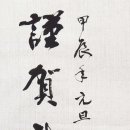 甲辰年元旦
謹賀